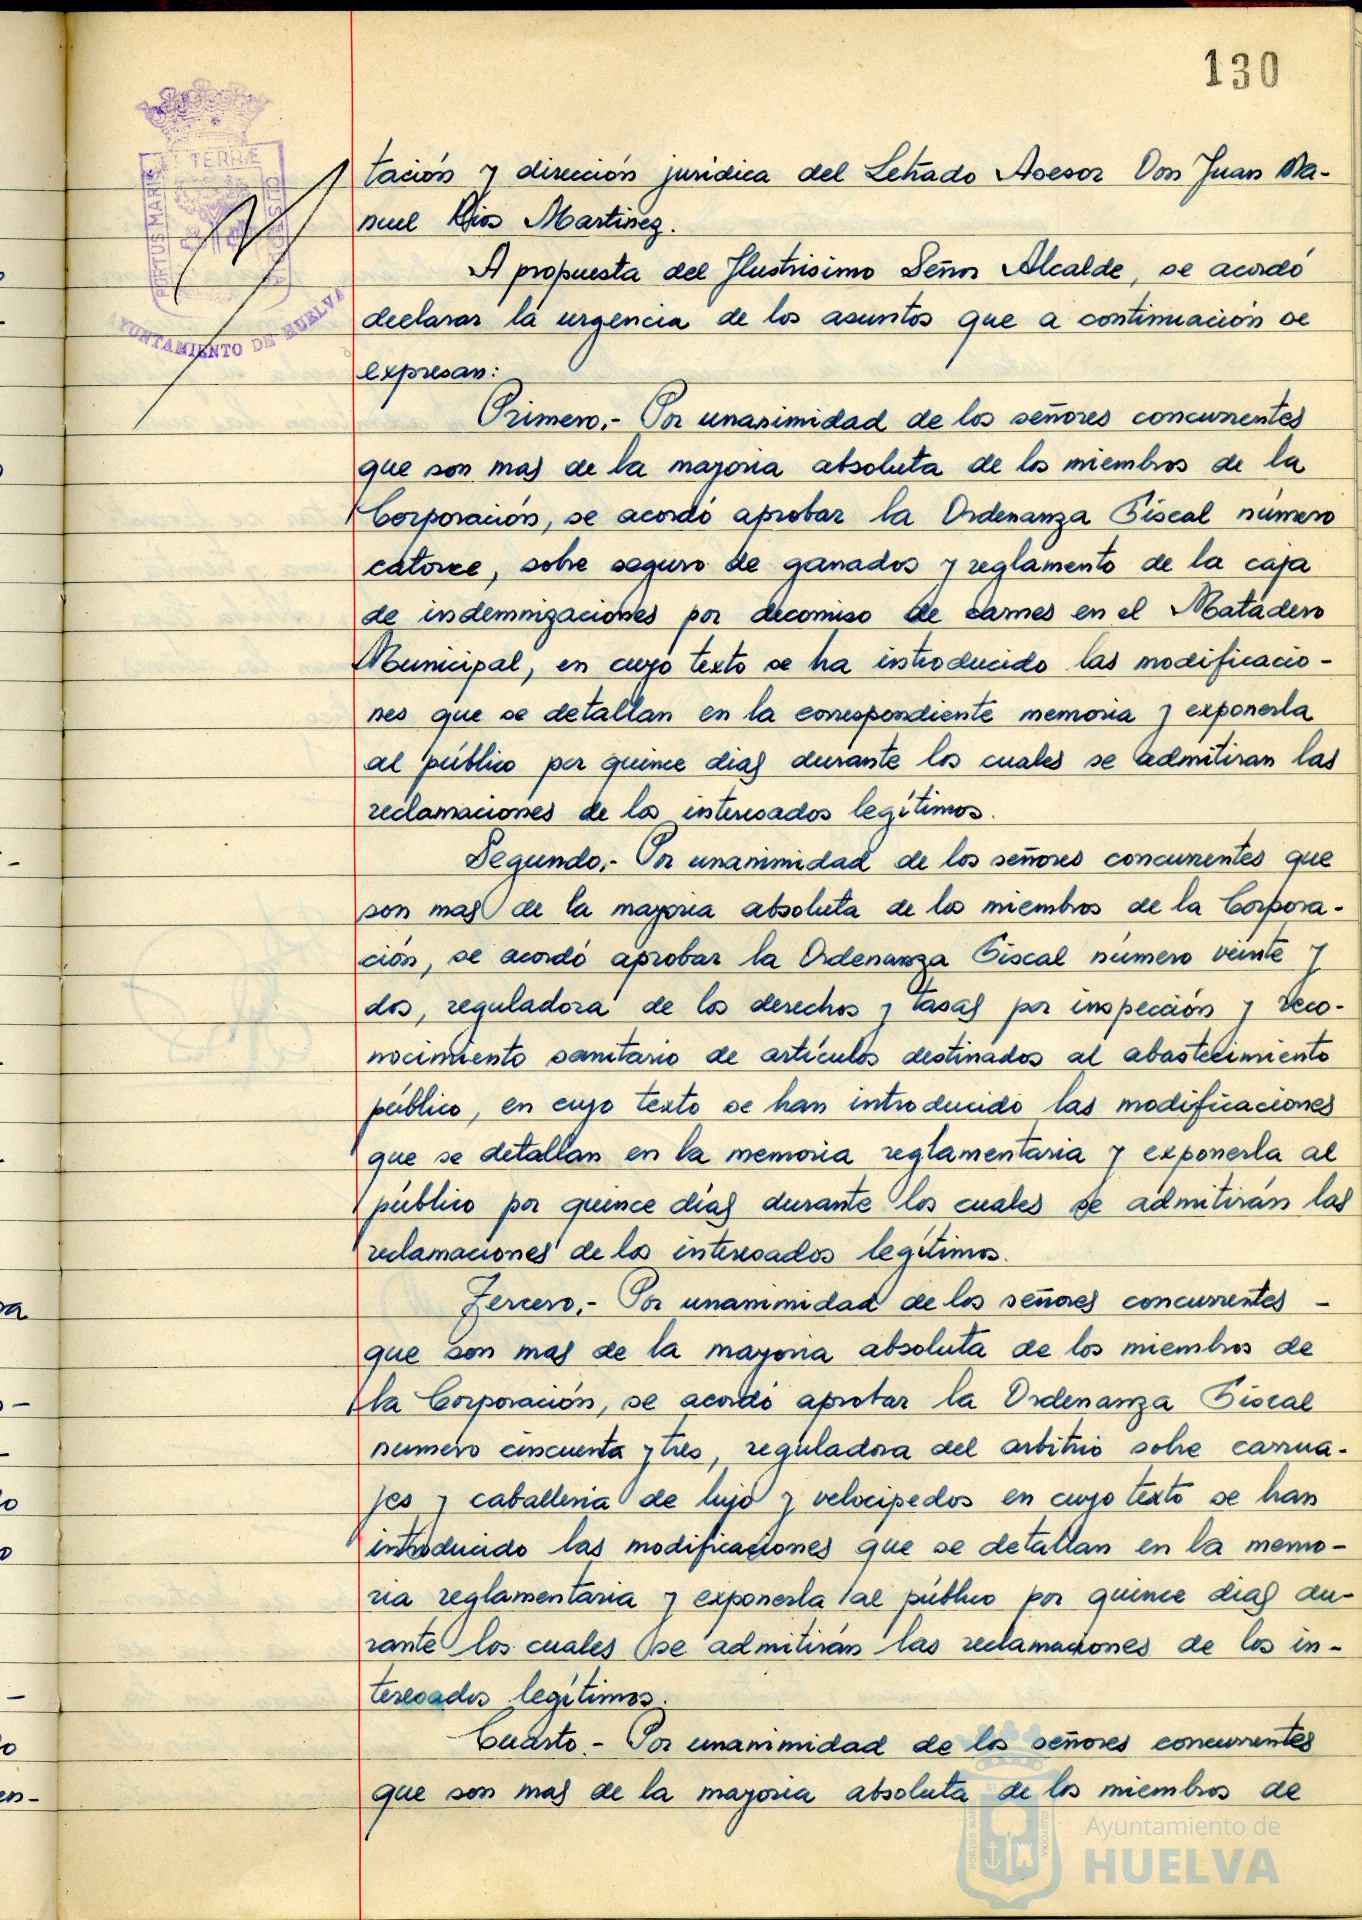 130
PORTUS MARIS
ET TERRÆ
CUSTODIA
AYUNTAMIENTO DE HUELVA
tación y dirección jurídica del Letrado Asesor Don Juan Ma-
nuel Rios Martinez.
A propuesta del Ilustrisimo Señor Alcalde, se acordó
declarar la urgencia de los asuntos que a continuación se
expresan:
Primero.- Por unanimidad de los señores concurrentes
que son mas de la mayoria absoluta de los miembros de la
Corporación, se acordó aprobar la Ordenanza Fiscal número
catorce, sobre seguro de ganados y reglamento de la caja
de indemnizaciones por decomiso de carnes en el Matadero
Municipal, en cuyo texto se ha introducido las modificacio-
nes que se detallan en la correspondiente memoria y exponerla
al público por quince dias durante los cuales se admitiran las
reclamaciones de los interesados legítimos.
Segundo.- Por unanimidad de los señores concurrentes que
son mas de la mayoria absoluta de los miembros de la Corpora-
ción, se acordó aprobar la Ordenanza Fiscal número veinte y
dos, reguladora de los derechos y tasas por inspección y reco-
nocimiento sanitario de artículos destinados al abastecimiento
público, en cuyo texto se han introducido las modificaciones
que se detallan en la memoria reglamentaria y exponerla al
público por quince días durante los cuales se admitirán las
reclamaciones de los interesados legítimos.
Tercero.- Por unanimidad de los señores concurrentes -
que son mas de la mayoria absoluta de los miembros de
la Corporación, se acordó aprobar la Ordenanza Fiscal
numero cincuenta y tres, reguladora del arbitrio sobre carrua-
jes y caballeria de lujo y velocipedos en cuyo texto se han
introducido las modificaciones que se detallan en la memo-
ria reglamentaria y exponerla al público por quince dias du-
rante los cuales se admitirán las reclamaciones de los in-
teresados legítimos.
Cuarto.- Por unanimidad de los señores concurrentes
que son mas de la mayoria absoluta de los miembros de
Ayuntamiento de
HUELVA